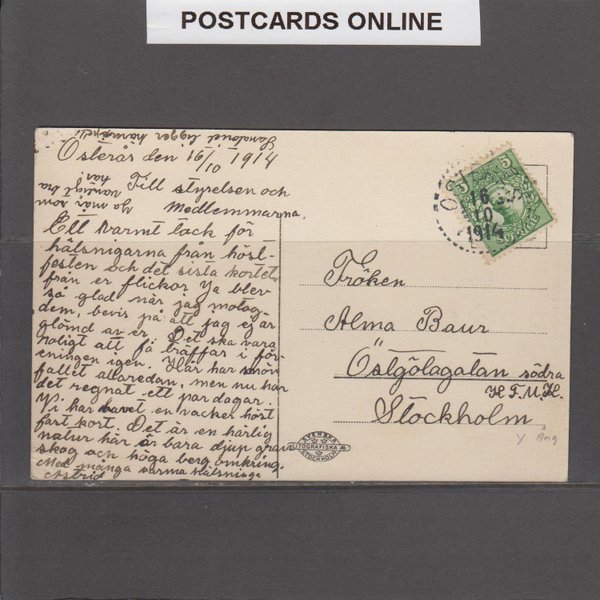 POSTCARDS ONLINE
Sanatoriet ligger härinne i
Österår den 16/10 1914
Ja mår som
vanligt bra
här!
Till styrelsen och
Medlemmarna.
Ett varmt tack för
hälsnigarna från höst-
festen och det sista kortet
från er flickor. Ja blev
så glad när jag motog
dem, bevis på att jag ej är
glömd av er. Det ska vara
roligt att få träffar i för-
eningen igen. Här har snön
fallet allaredan, men nu har
det regnat ett par dagar.
Vi har havet en vacker höst
fart kort. Det är en härlig
natur här är bara djup gran
skog och höga berg omkring.
Med många varma hälsningar
Astrid
5 5
SVERIGE
16
10
1914
Fröken
Alma Baur
Östgötagatan södra
K.F.U.K.
Stockholm
SVENSKA
LITOGRAFISKA AB
STOCKHOLM